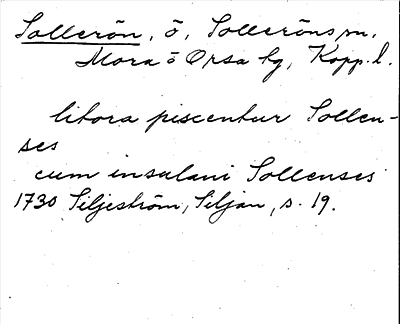 Sollerön, ö, Solleröns sn,
Mora o Orsa tg, Kopp. l.
litora piscentur Sollen-
ses
cum insulani Sollenses
1730 Siljeström, Siljan, s. 19.